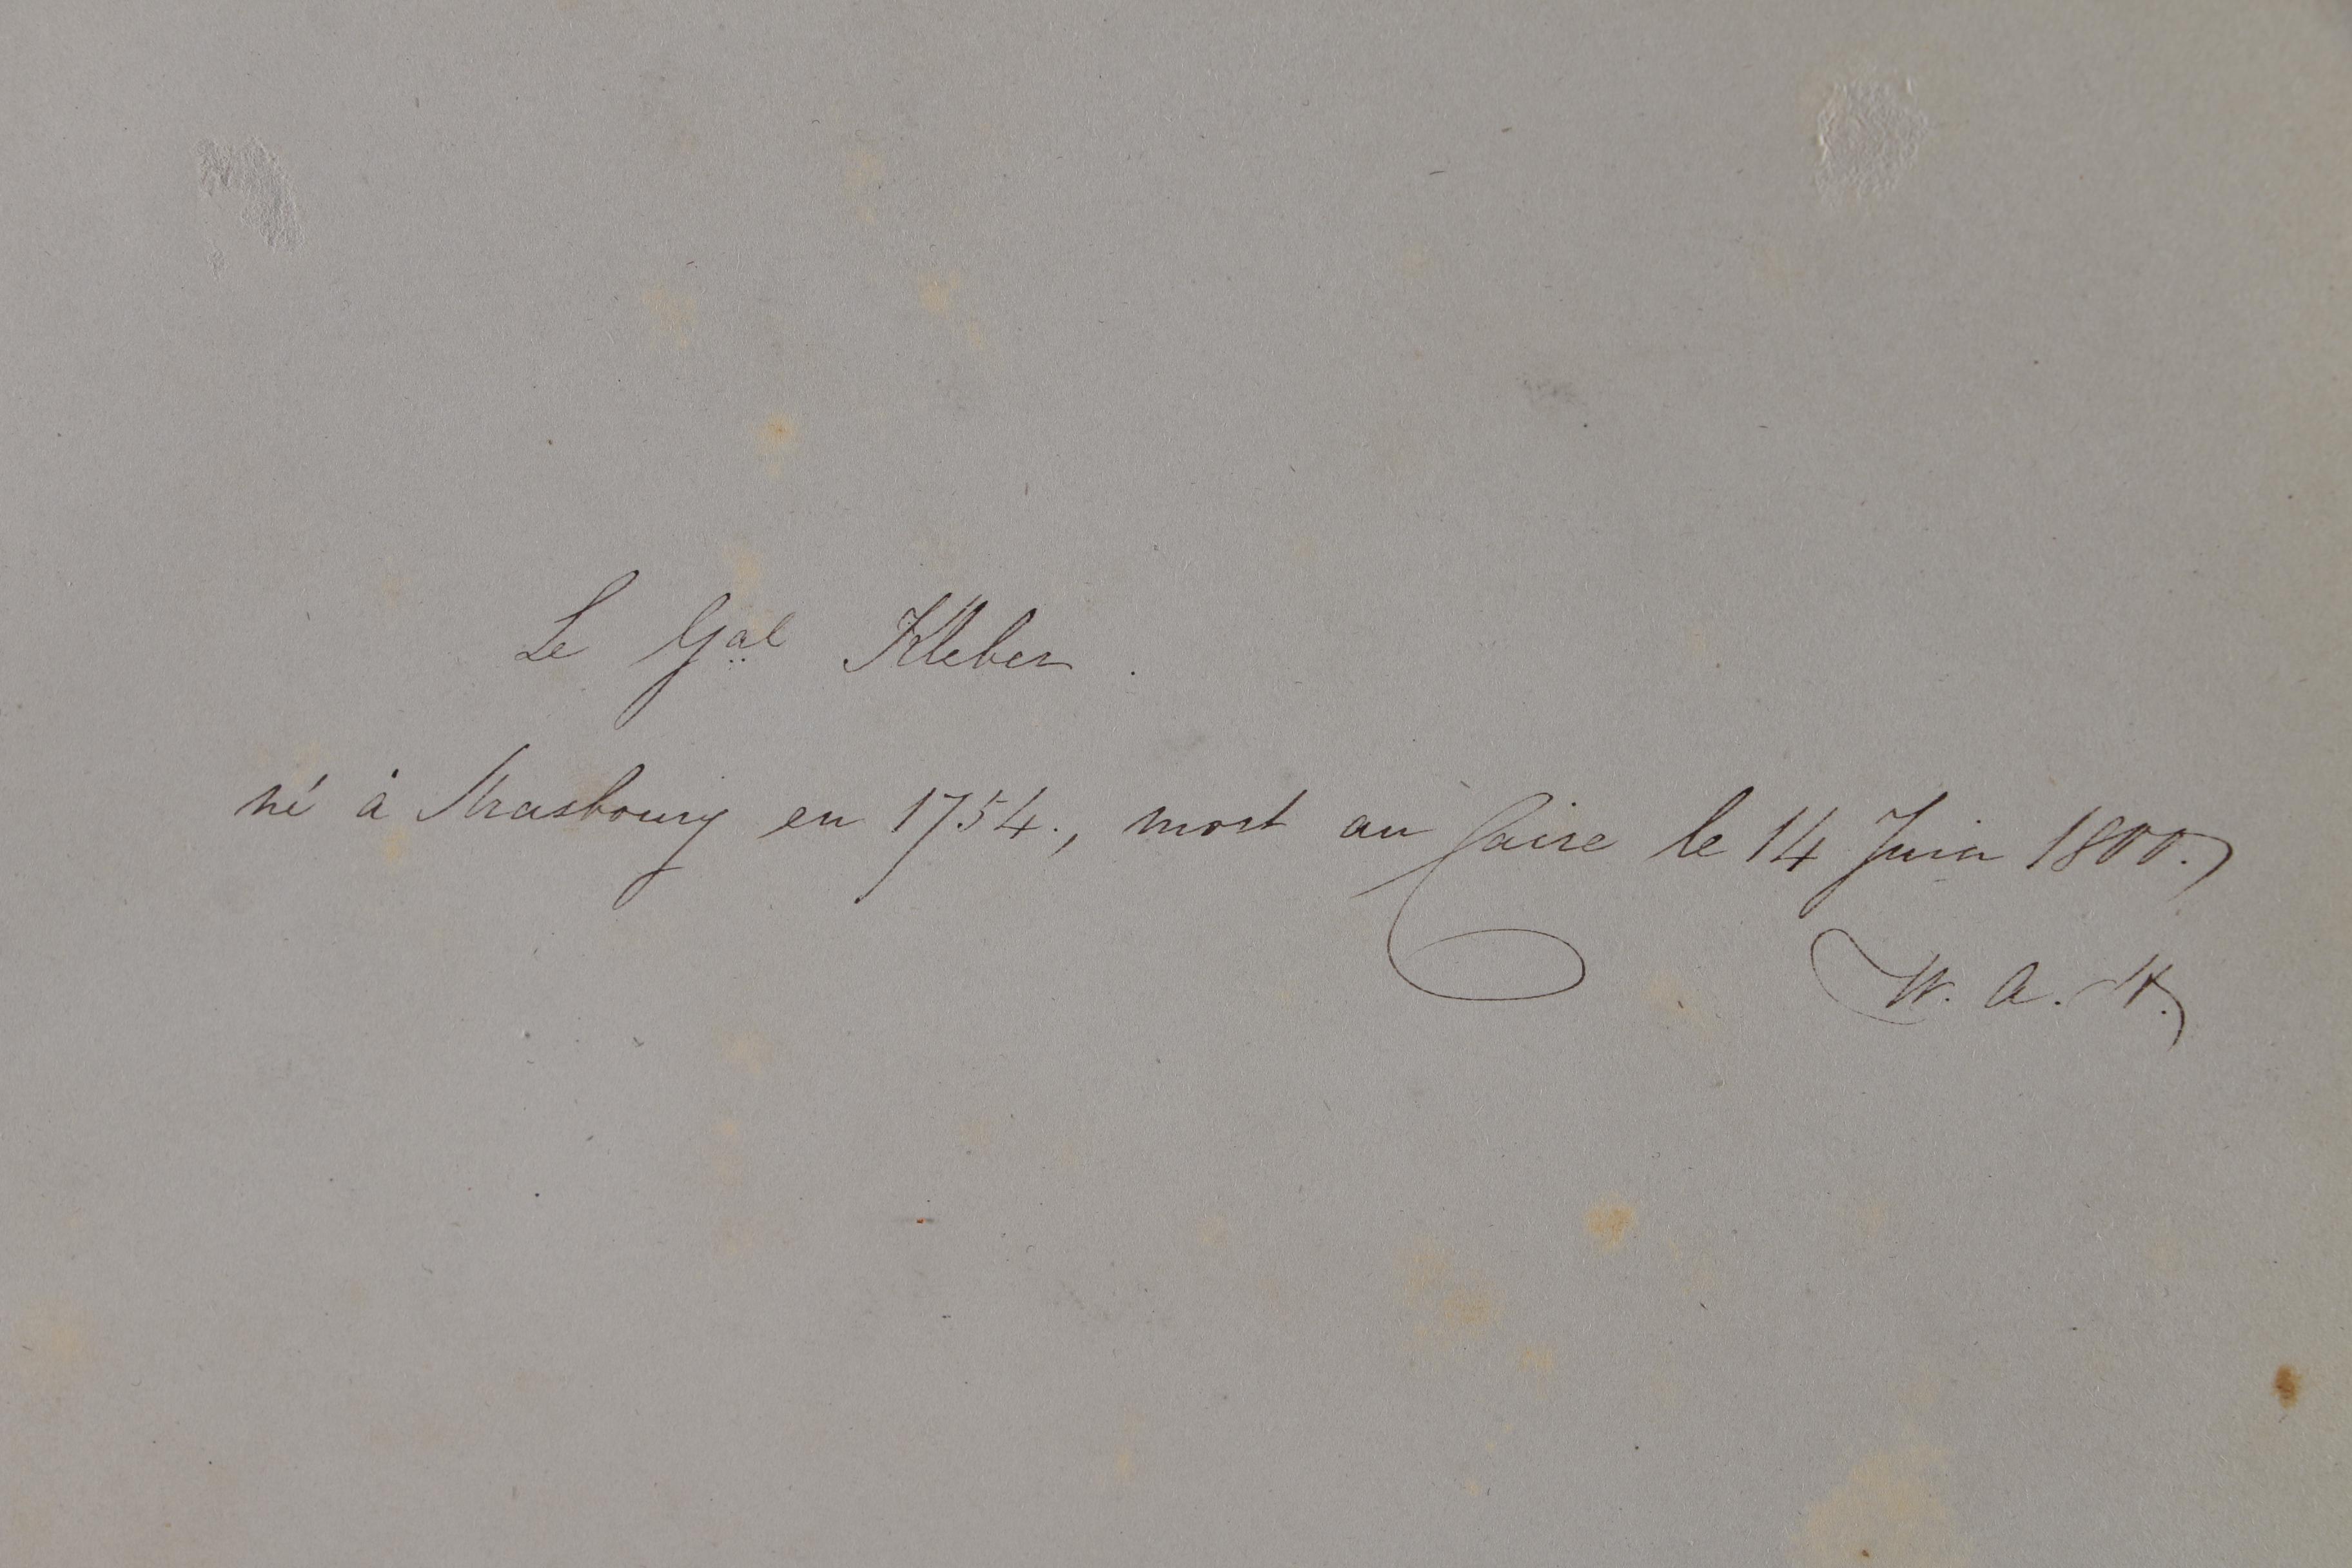 Le Gal Kleber.
né à Strasbourg en 1754., mort au Caire le 14 Juin 1800.
W. A. H.